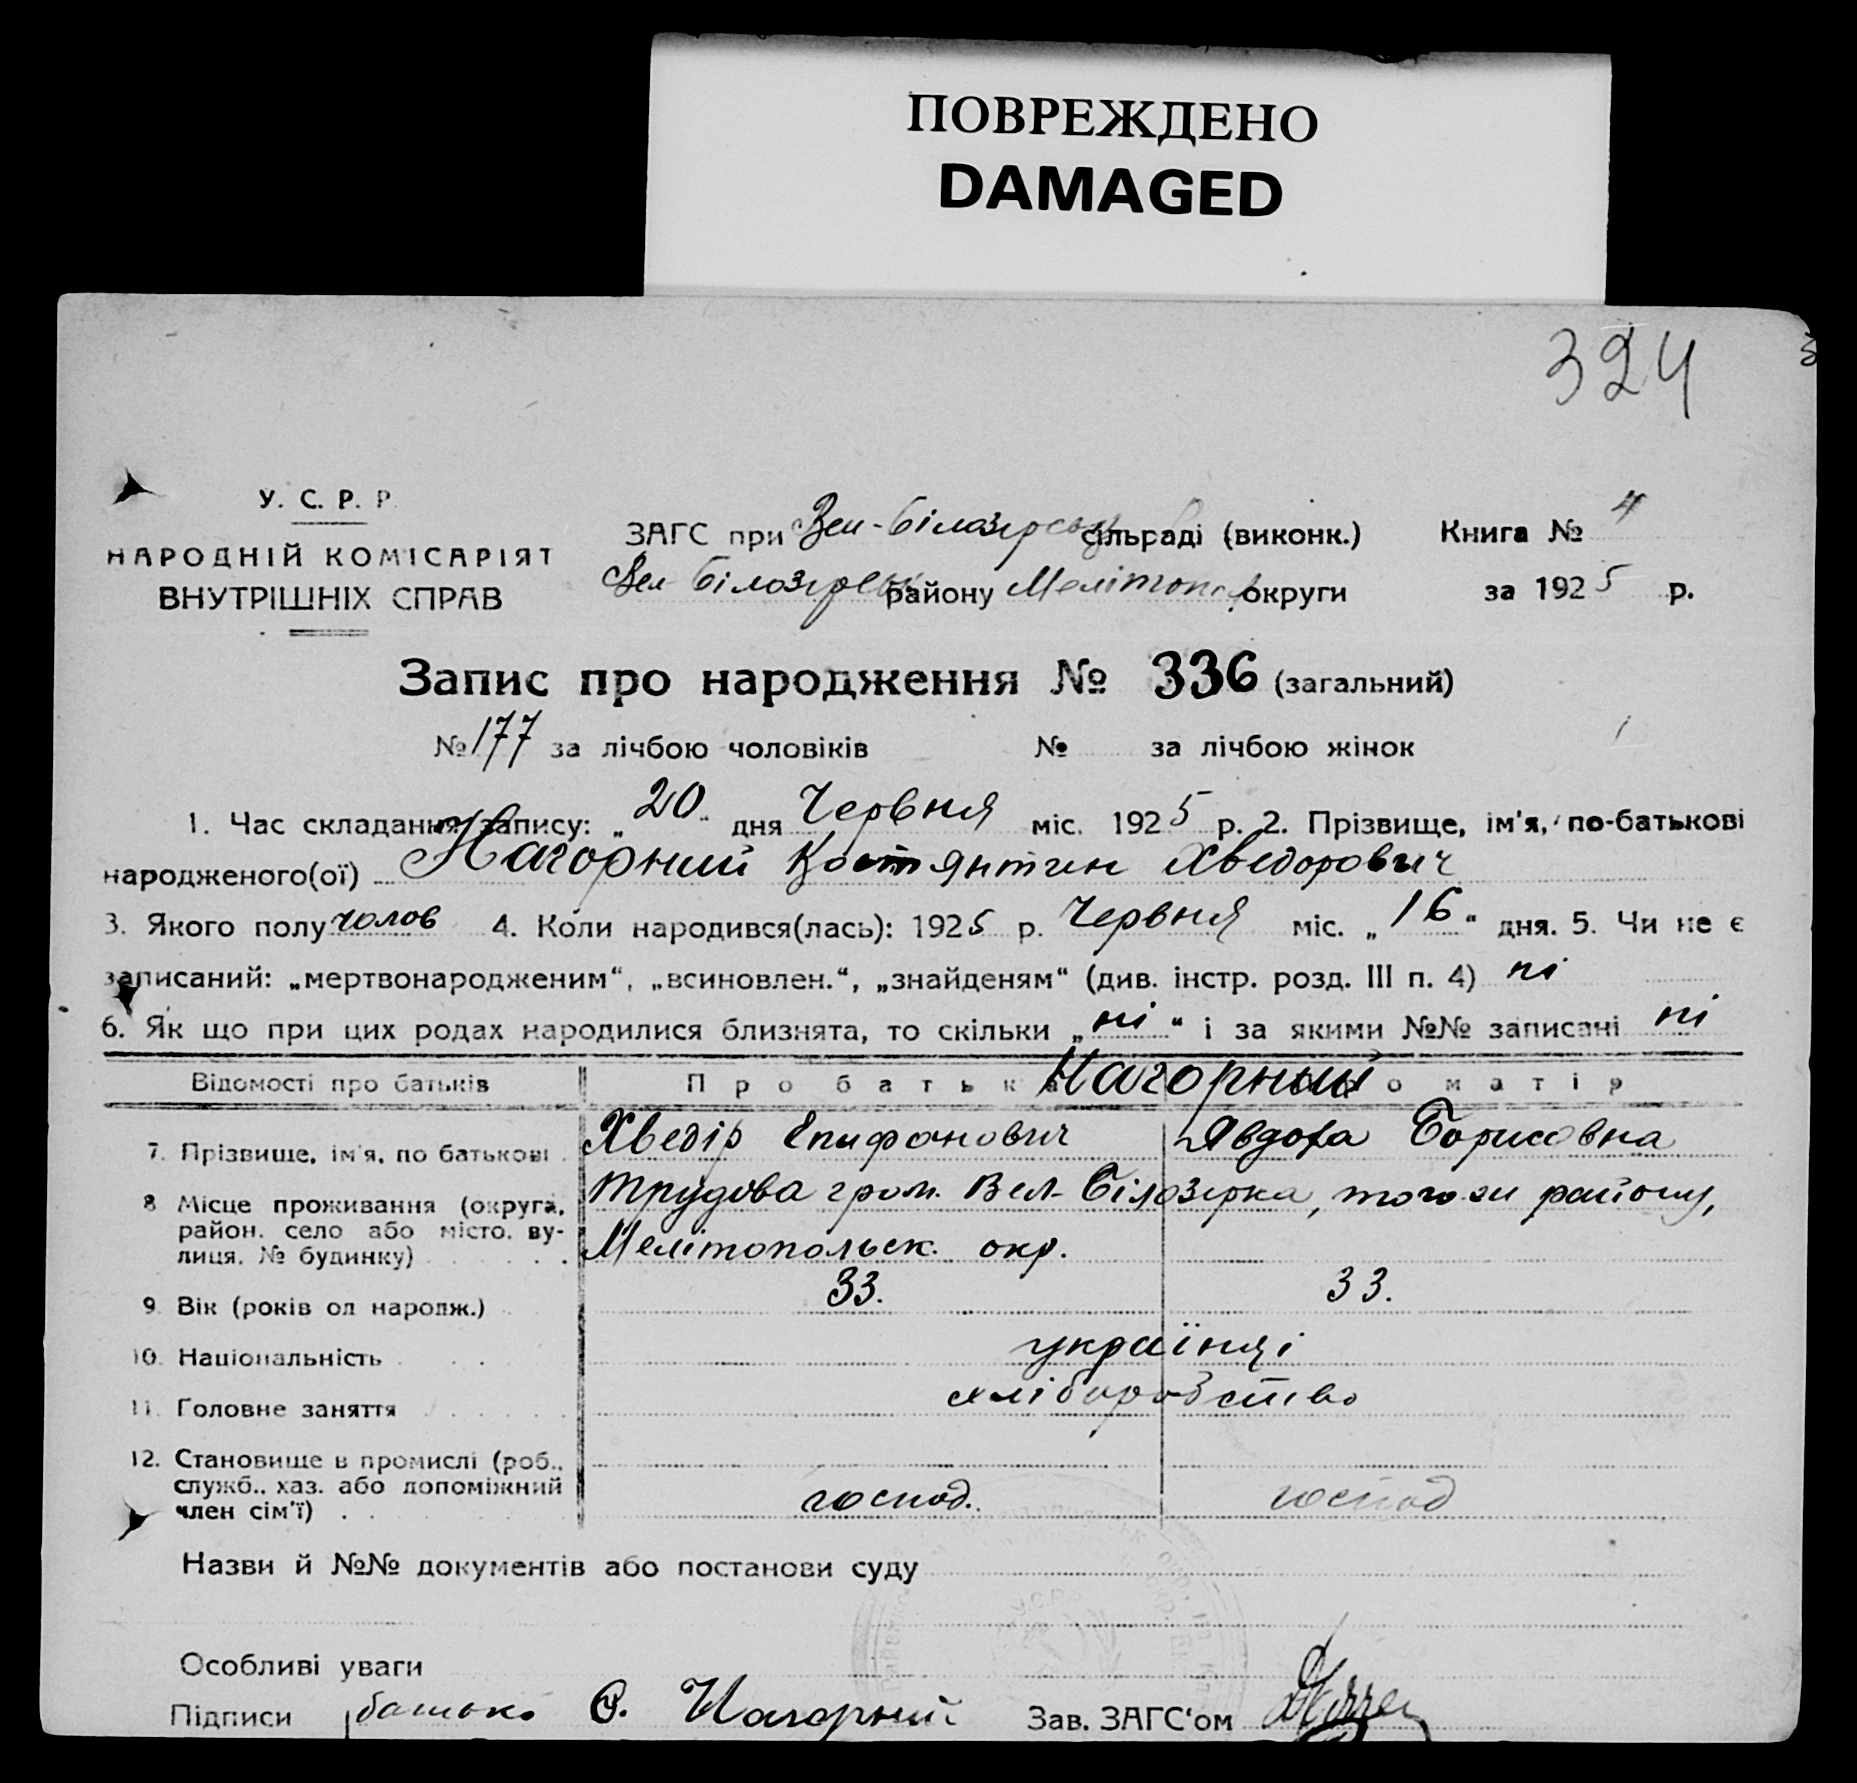 ПОВРЕЖДЕНО
DAMAGED
324
У. С. Р. Р.
НАРОДНІЙ КОМІСАРІЯТ
ВНУТРІШНІХ СПРАВ
ЗАГС при Вел-Білозірськ сільраді (виконк.) Книга № 4
Вел Білозірськ району Мелітоп. округи за 1925 р.
Запис про народження № 336 (загальний)
№ 177 за лічбою чоловіків № за лічбою жінок
1. Час складання запису: „20" дня Червня міс. 1925 р. 2. Прізвище, ім'я, по-батькові
народженого(ої) Нагорний Костянтин Хведорович
3. Якого полу чолов 4. Коли народився(лась): 1925 р. Червня міс. „16" дня. 5. Чи не є
записаний: „мертвонародженим", „всиновлен.", „знайденям" (див. інстр. розд. III п. 4) ні
6. Як що при цих родах народилися близнята, то скільки „ні" і за якими №№ записані ні
Відомості про батьків Про батька Нагорний о матір
7. Прізвище, ім'я, по батькові Хведір Епифанович Явдоха Борисовна
8 Місце проживання (округа, район, село або місто, вулиця, № будинку) Трудова гром. Вел-Білозірка, того ж району,
Мелітопольск. окр.
9. Вік (років од народж.) 33. 33.
10. Національність українці
11. Головне заняття хліборобство
12. Становище в промислі (роб.,
служб., хаз. або допоміжний
член сім'ї) господ. господ
Назви й №№ документів або постанови суду
Особливі уваги
Підписи батько Ф. Нагорний Зав. ЗАГС'ом